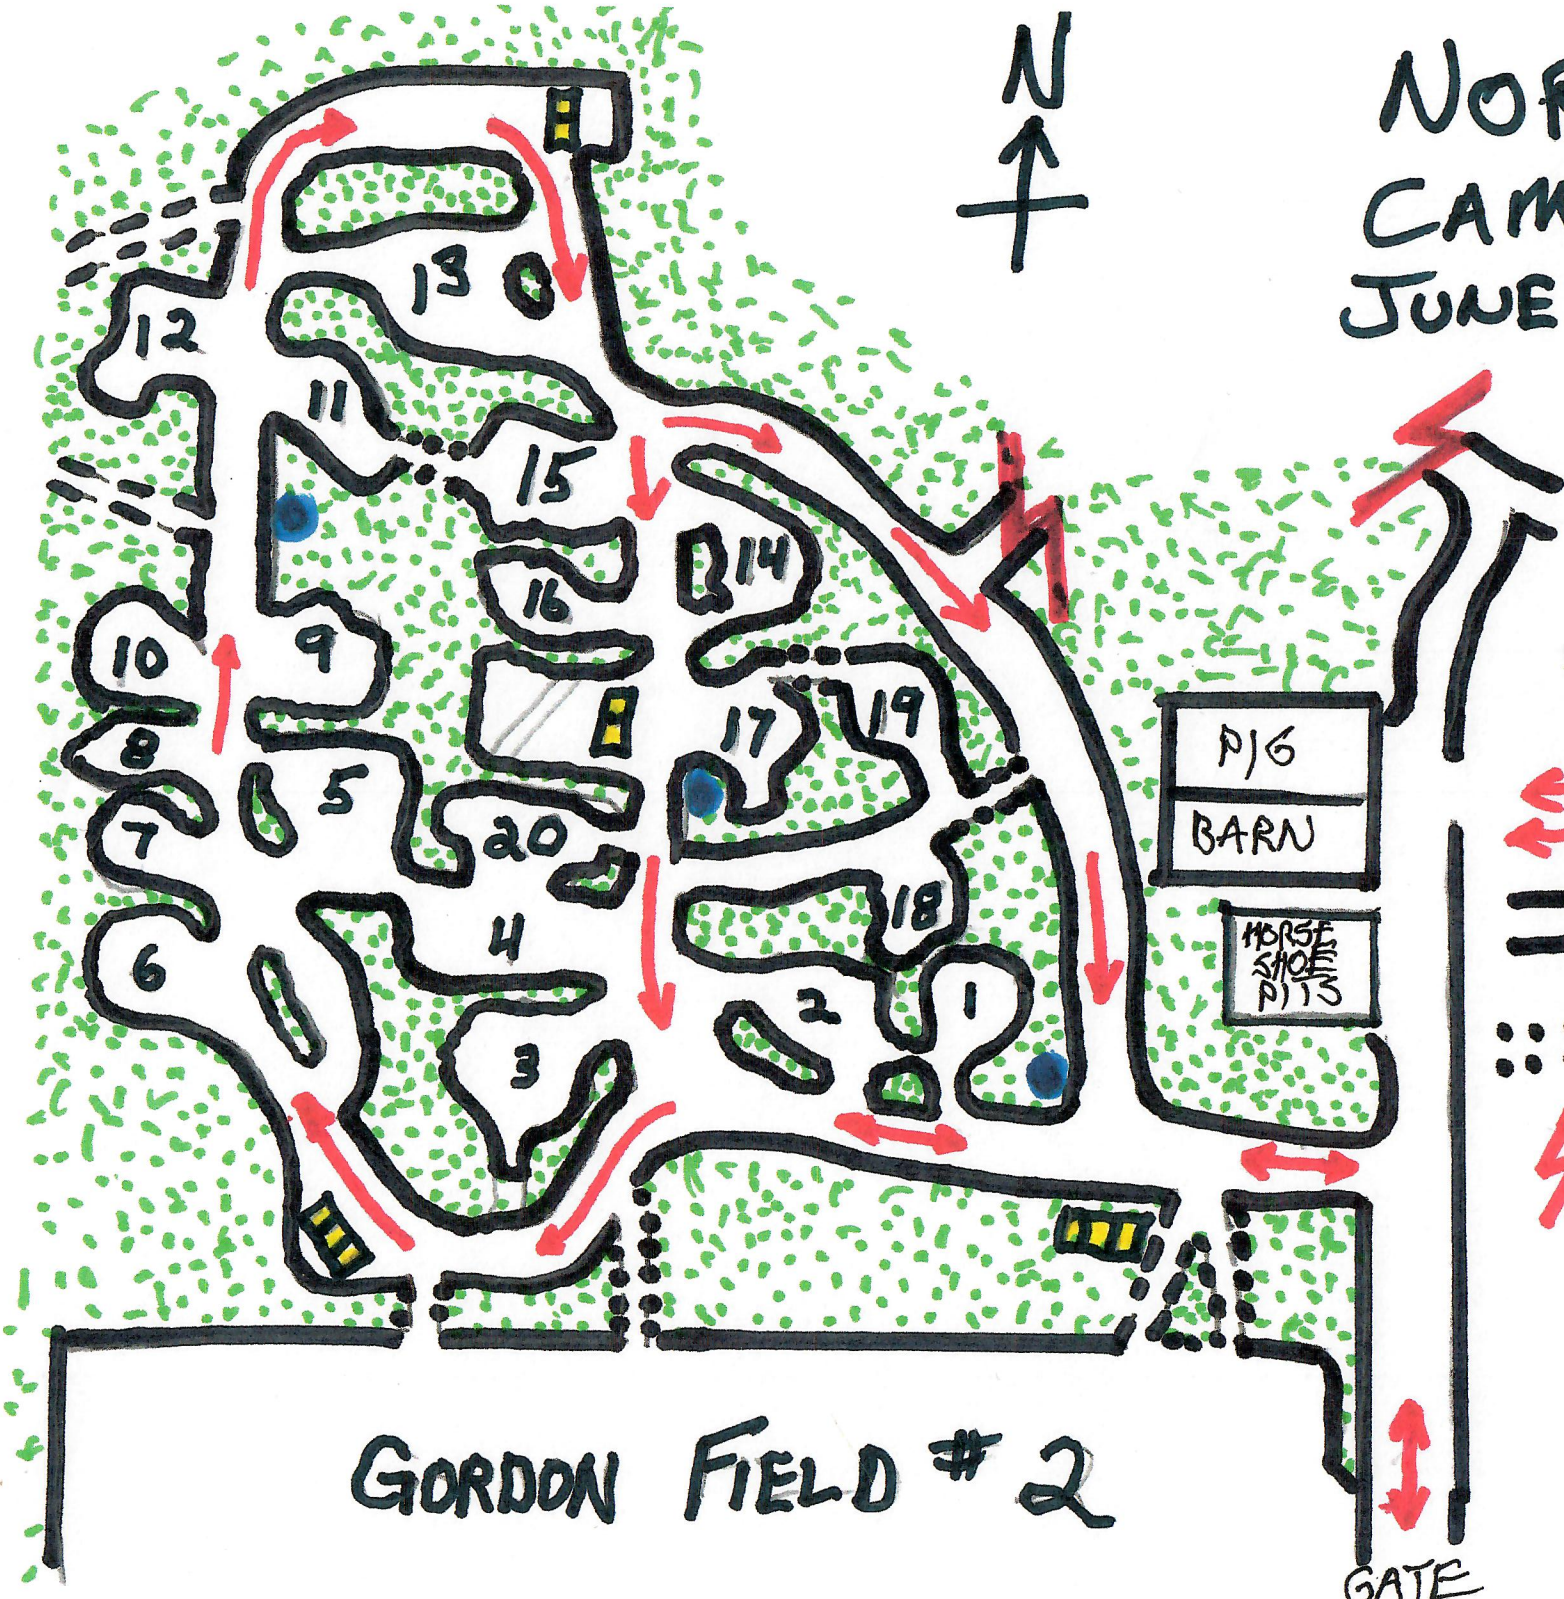 N
NOR
CAM
JUNE
13
12
11
15
14
16
10
9
17
19
8
5
7
20
18
4
6
2
1
3
PIG
BARN
HORSE
SHOE
PITS
GORDON FIELD #2
GATE